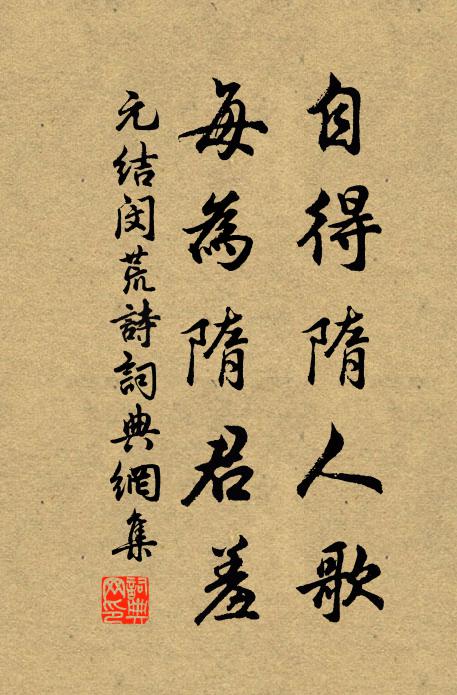 自得隋人歌
每為隋君羞
元结闵荒詩詞典網集
詞典网印